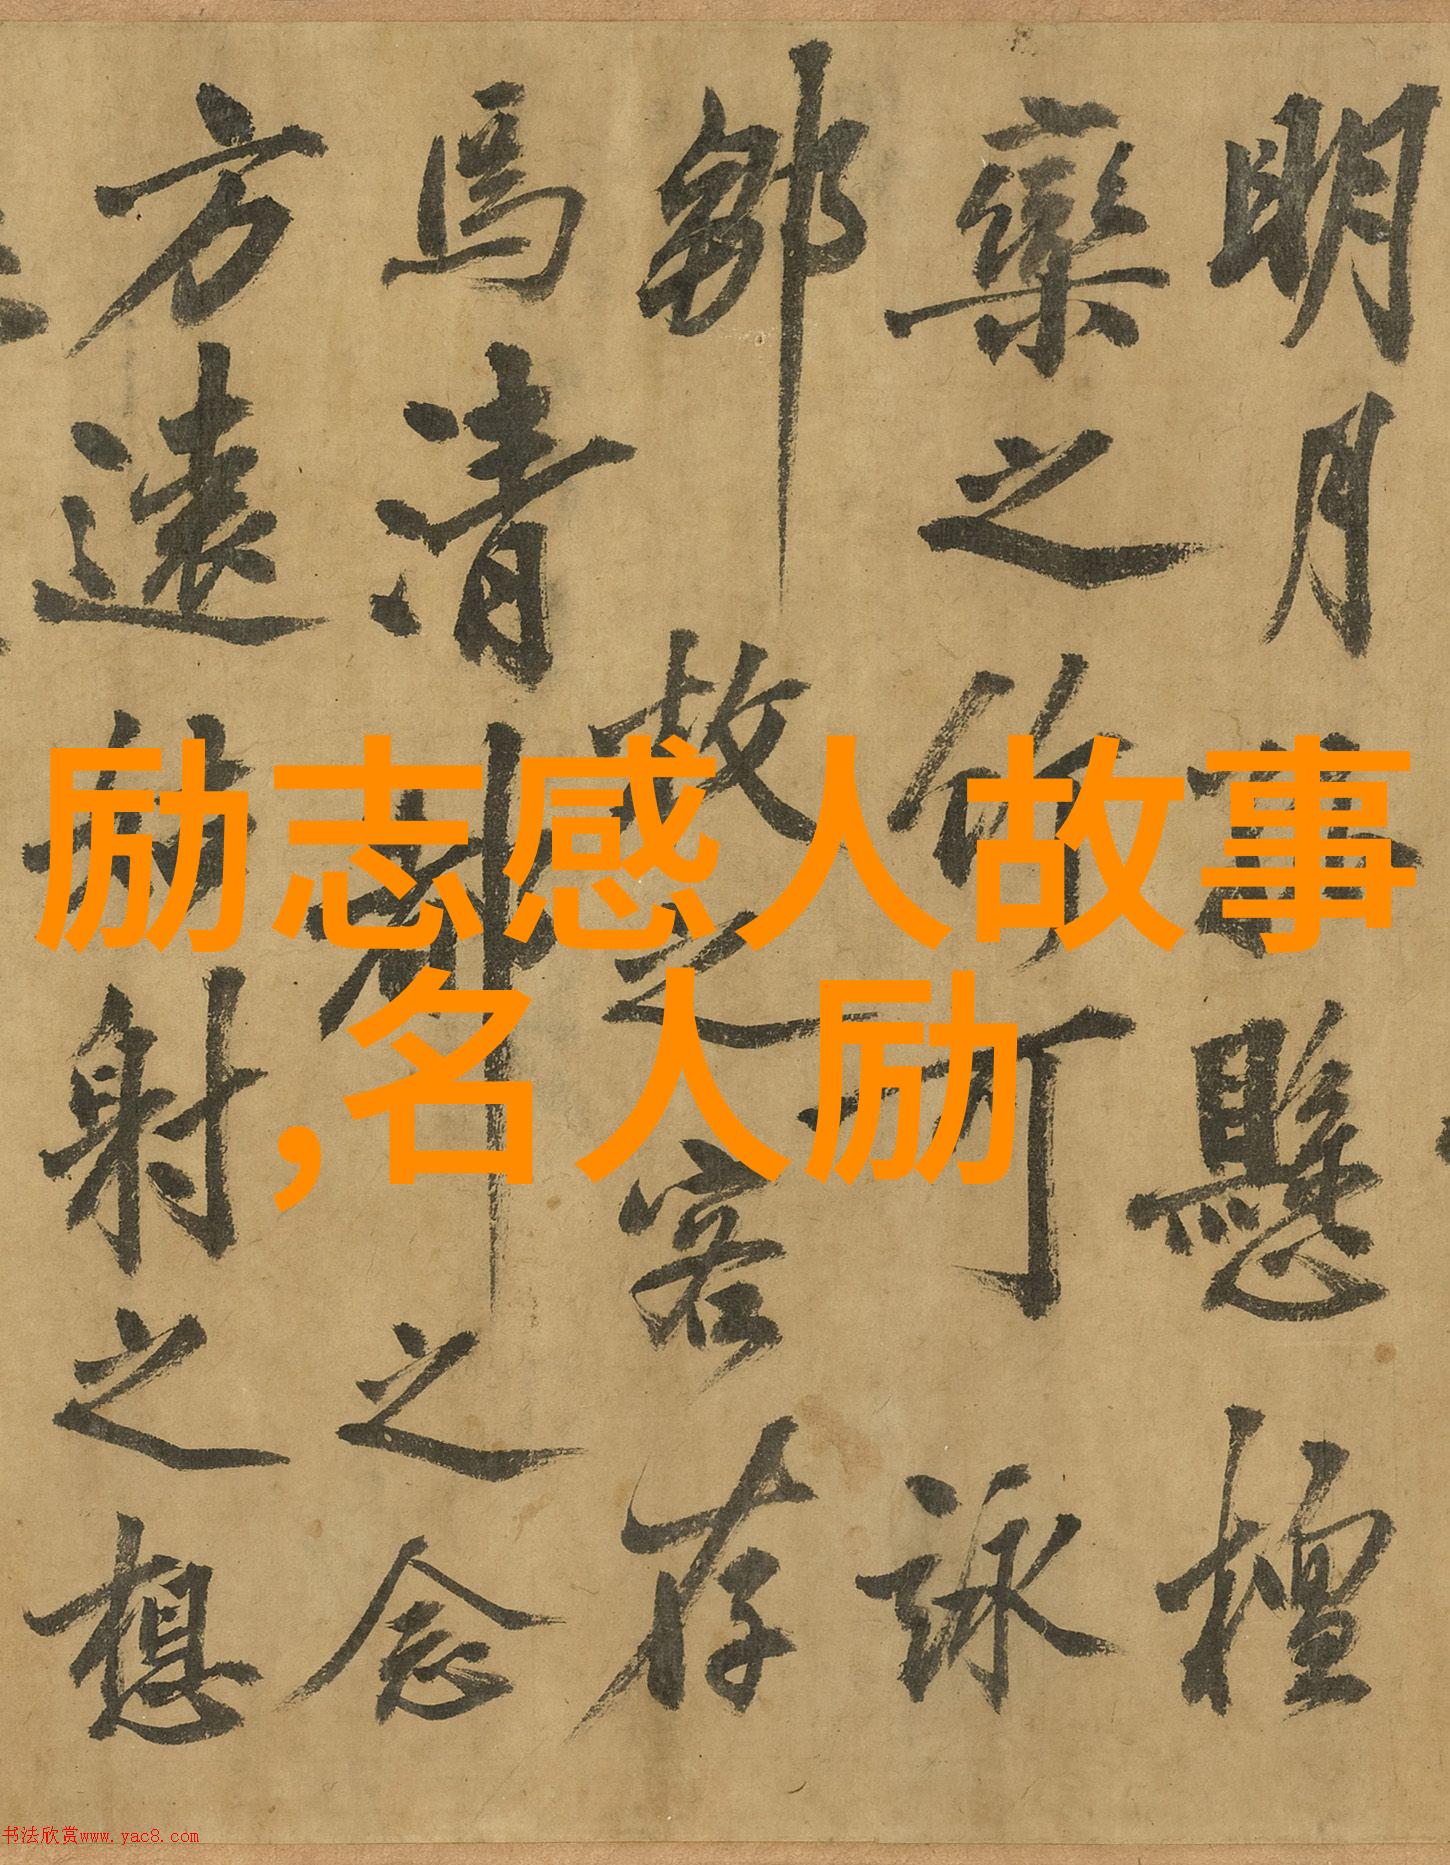 明月懸檀
欒之竹可詠
鄒枚之客存
焉清之念
方遠射之想
励志感人故事
,名人励
书法欣赏www.yac8.com